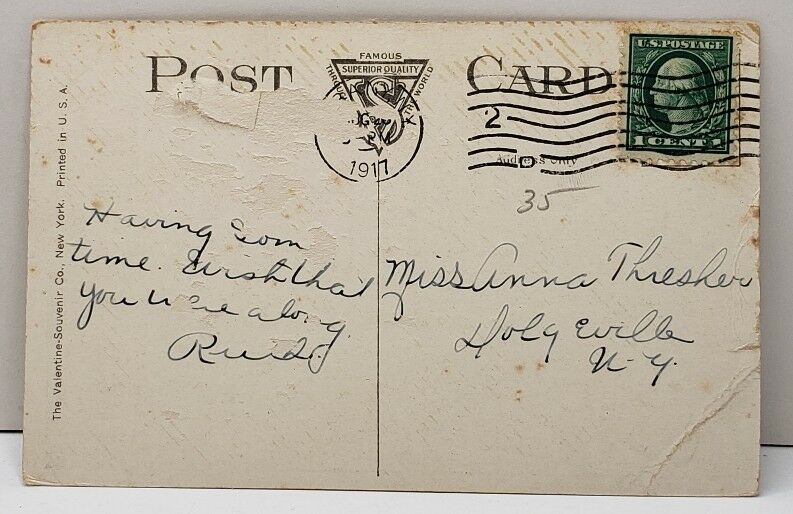 POST CARD
FAMOUS
THROUGHOUT
SUPERIOR QUALITY
WORLD
1917
2
D
Address Only
U.S. POSTAGE
1 CENT 1
35
Having som
time. Wish that
you were along.
Miss Anna Thresher
Dolgeville
N-Y.
The Valentine-Souvenir Co., New York. Printed in U. S. A.